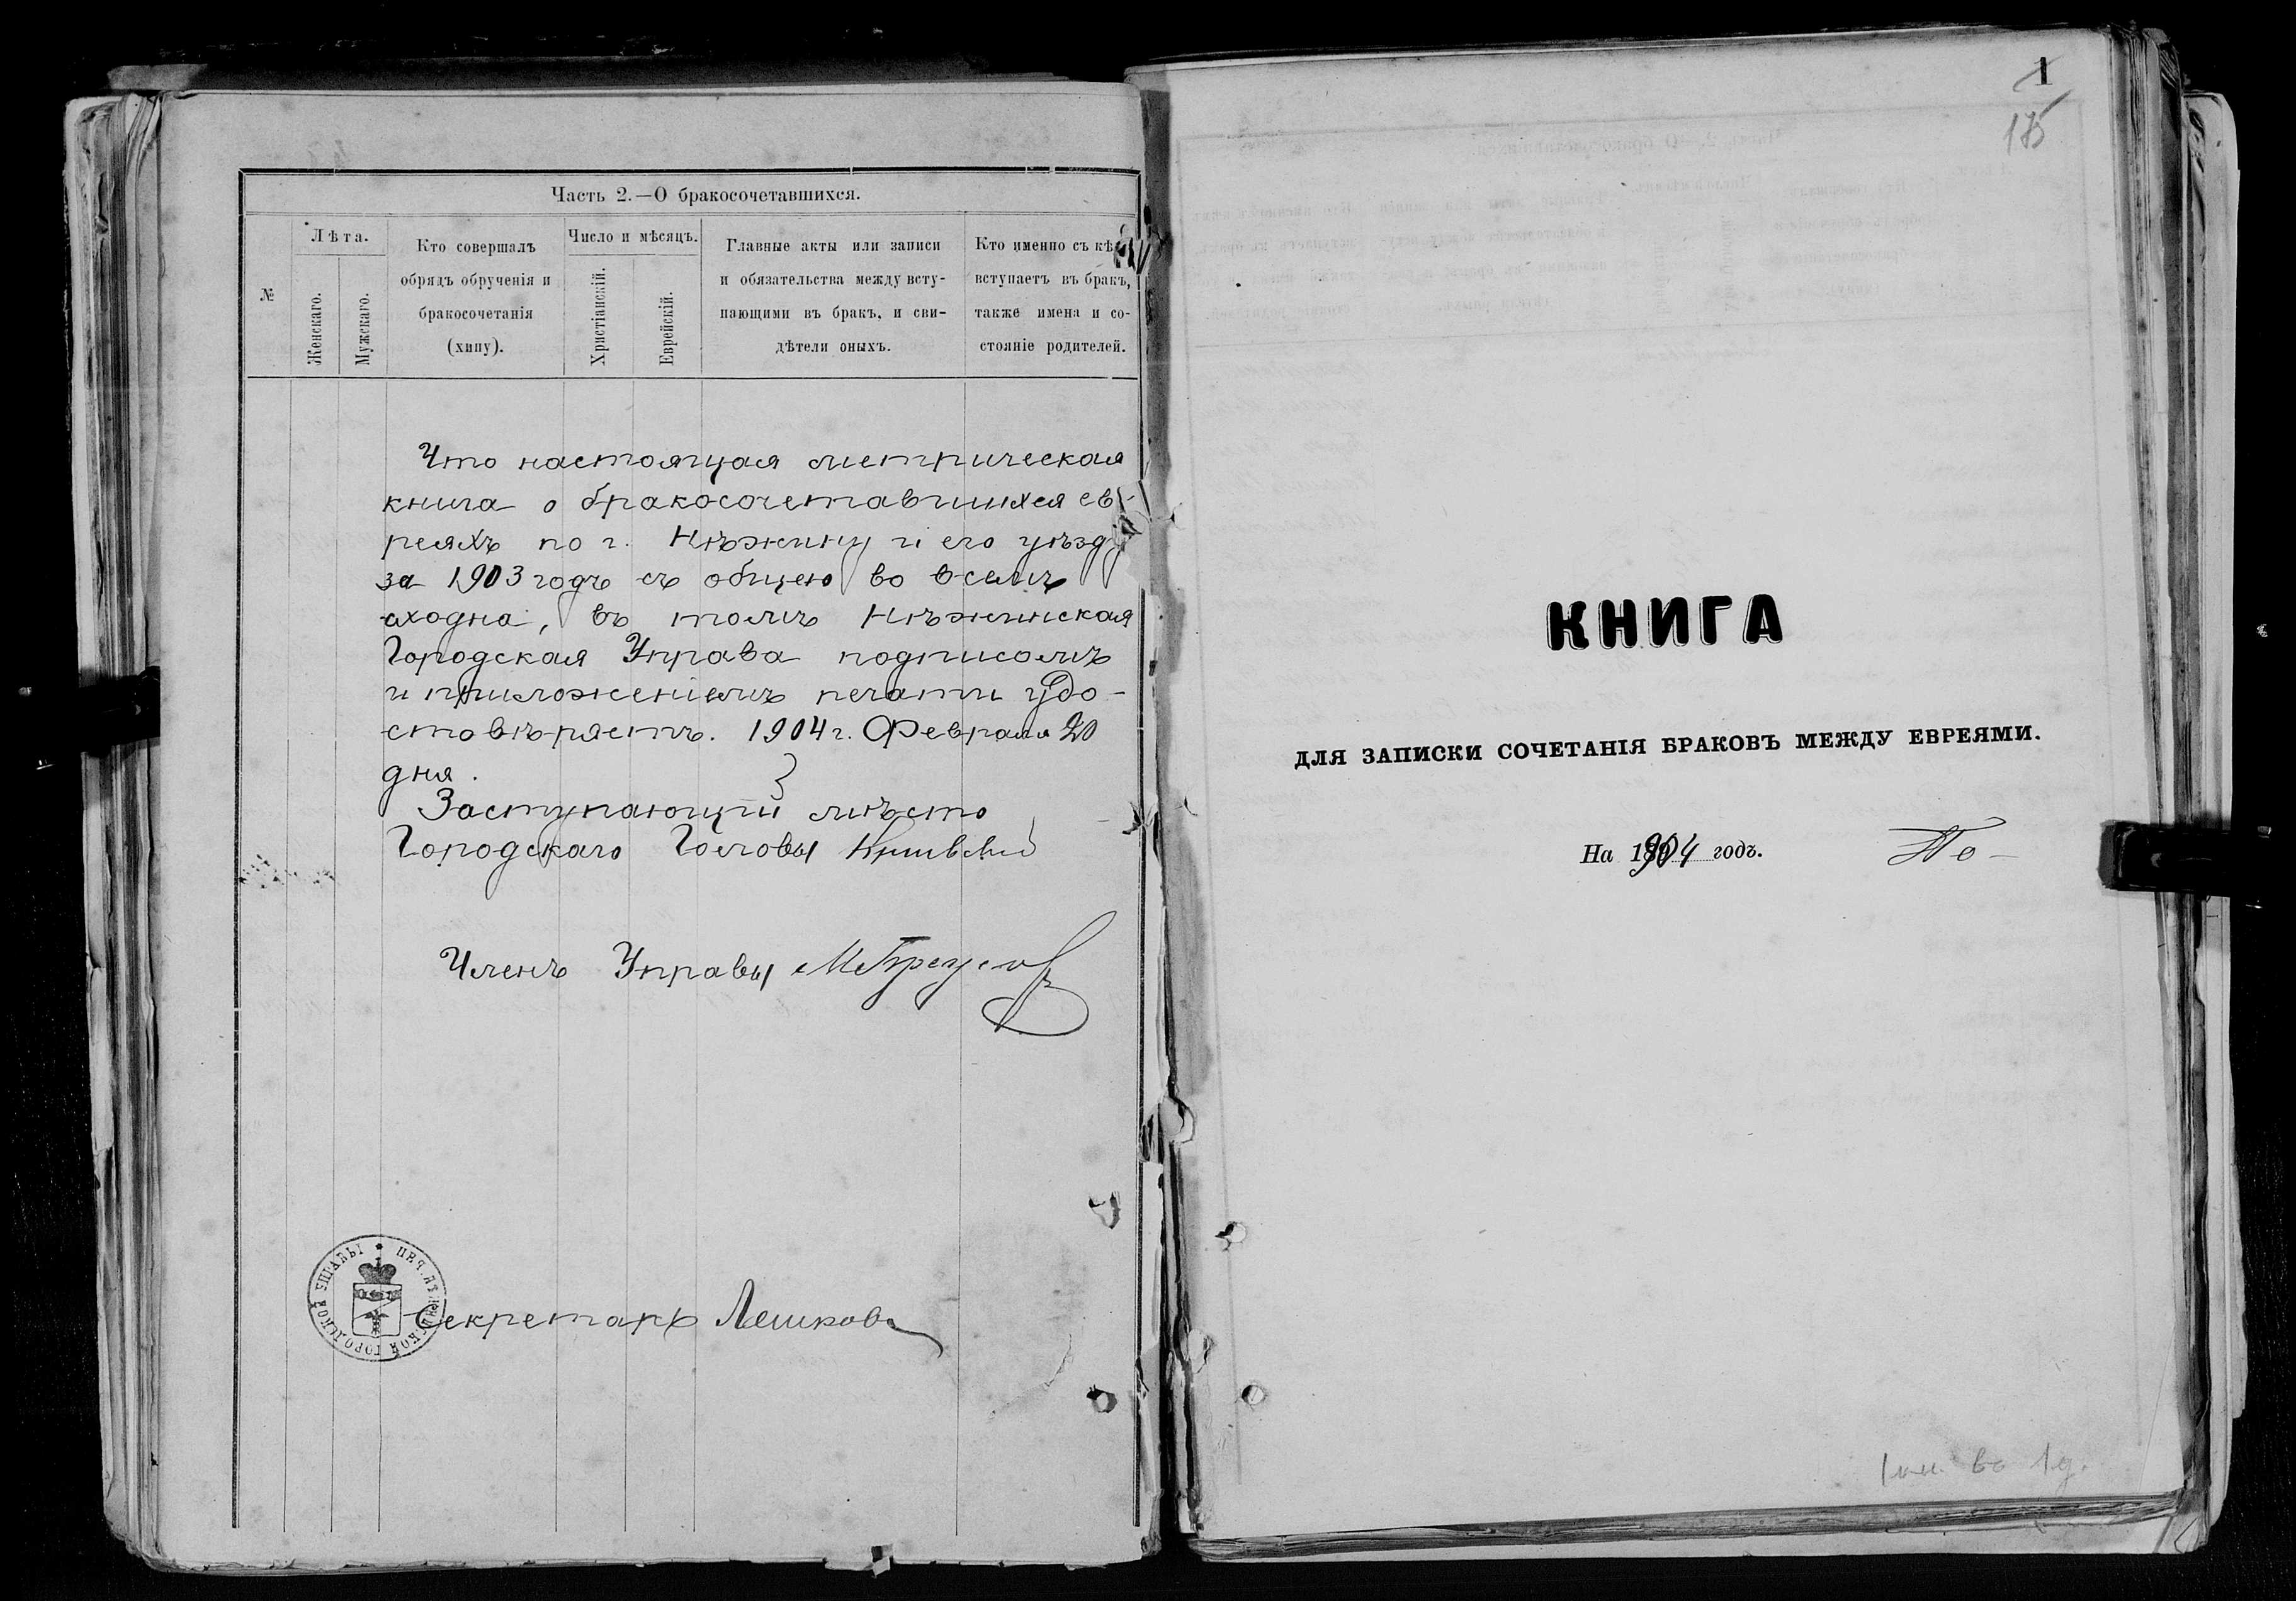 Часть 2.—О бракосочетавшихся.
№
Лѣта.
Женскаго.
Мужскаго.
Кто совершалъ
обрядъ обрученія и
бракосочетанія
(хипу).
Число и мѣсяцъ.
Христіанскій.
Еврейскій.
Главные акты или записи
и обязательства между всту-
пающими въ бракъ, и сви-
дѣтели оныхъ.
Кто именно съ кѣ
вступаетъ въ бракъ,
также имена и со-
стояніе родителей.
Что настоящая метрическая
книга о бракосочетавшихся ев-
реяхъ по г. Нѣжину и его уѣзду
за 1903 годъ съ общею во всемъ
сходна, въ томъ Нѣжинская
Городская Управа подписомъ
и приложеніемъ печати удо-
стовѣряетъ. 1904 г. Февраля 20
дня.
Заступающій мѣсто
Городскаго Головы
Членъ Управы
Секретарь Лешковъ
ПЕЧ. НѢЖИНСКОЙ ГОРОДСКОЙ УПРАВЫ
1
175
КНИГА
ДЛЯ ЗАПИСКИ СОЧЕТАНІЯ БРАКОВЪ МЕЖДУ ЕВРЕЯМИ.
На 1904 годъ.
По-